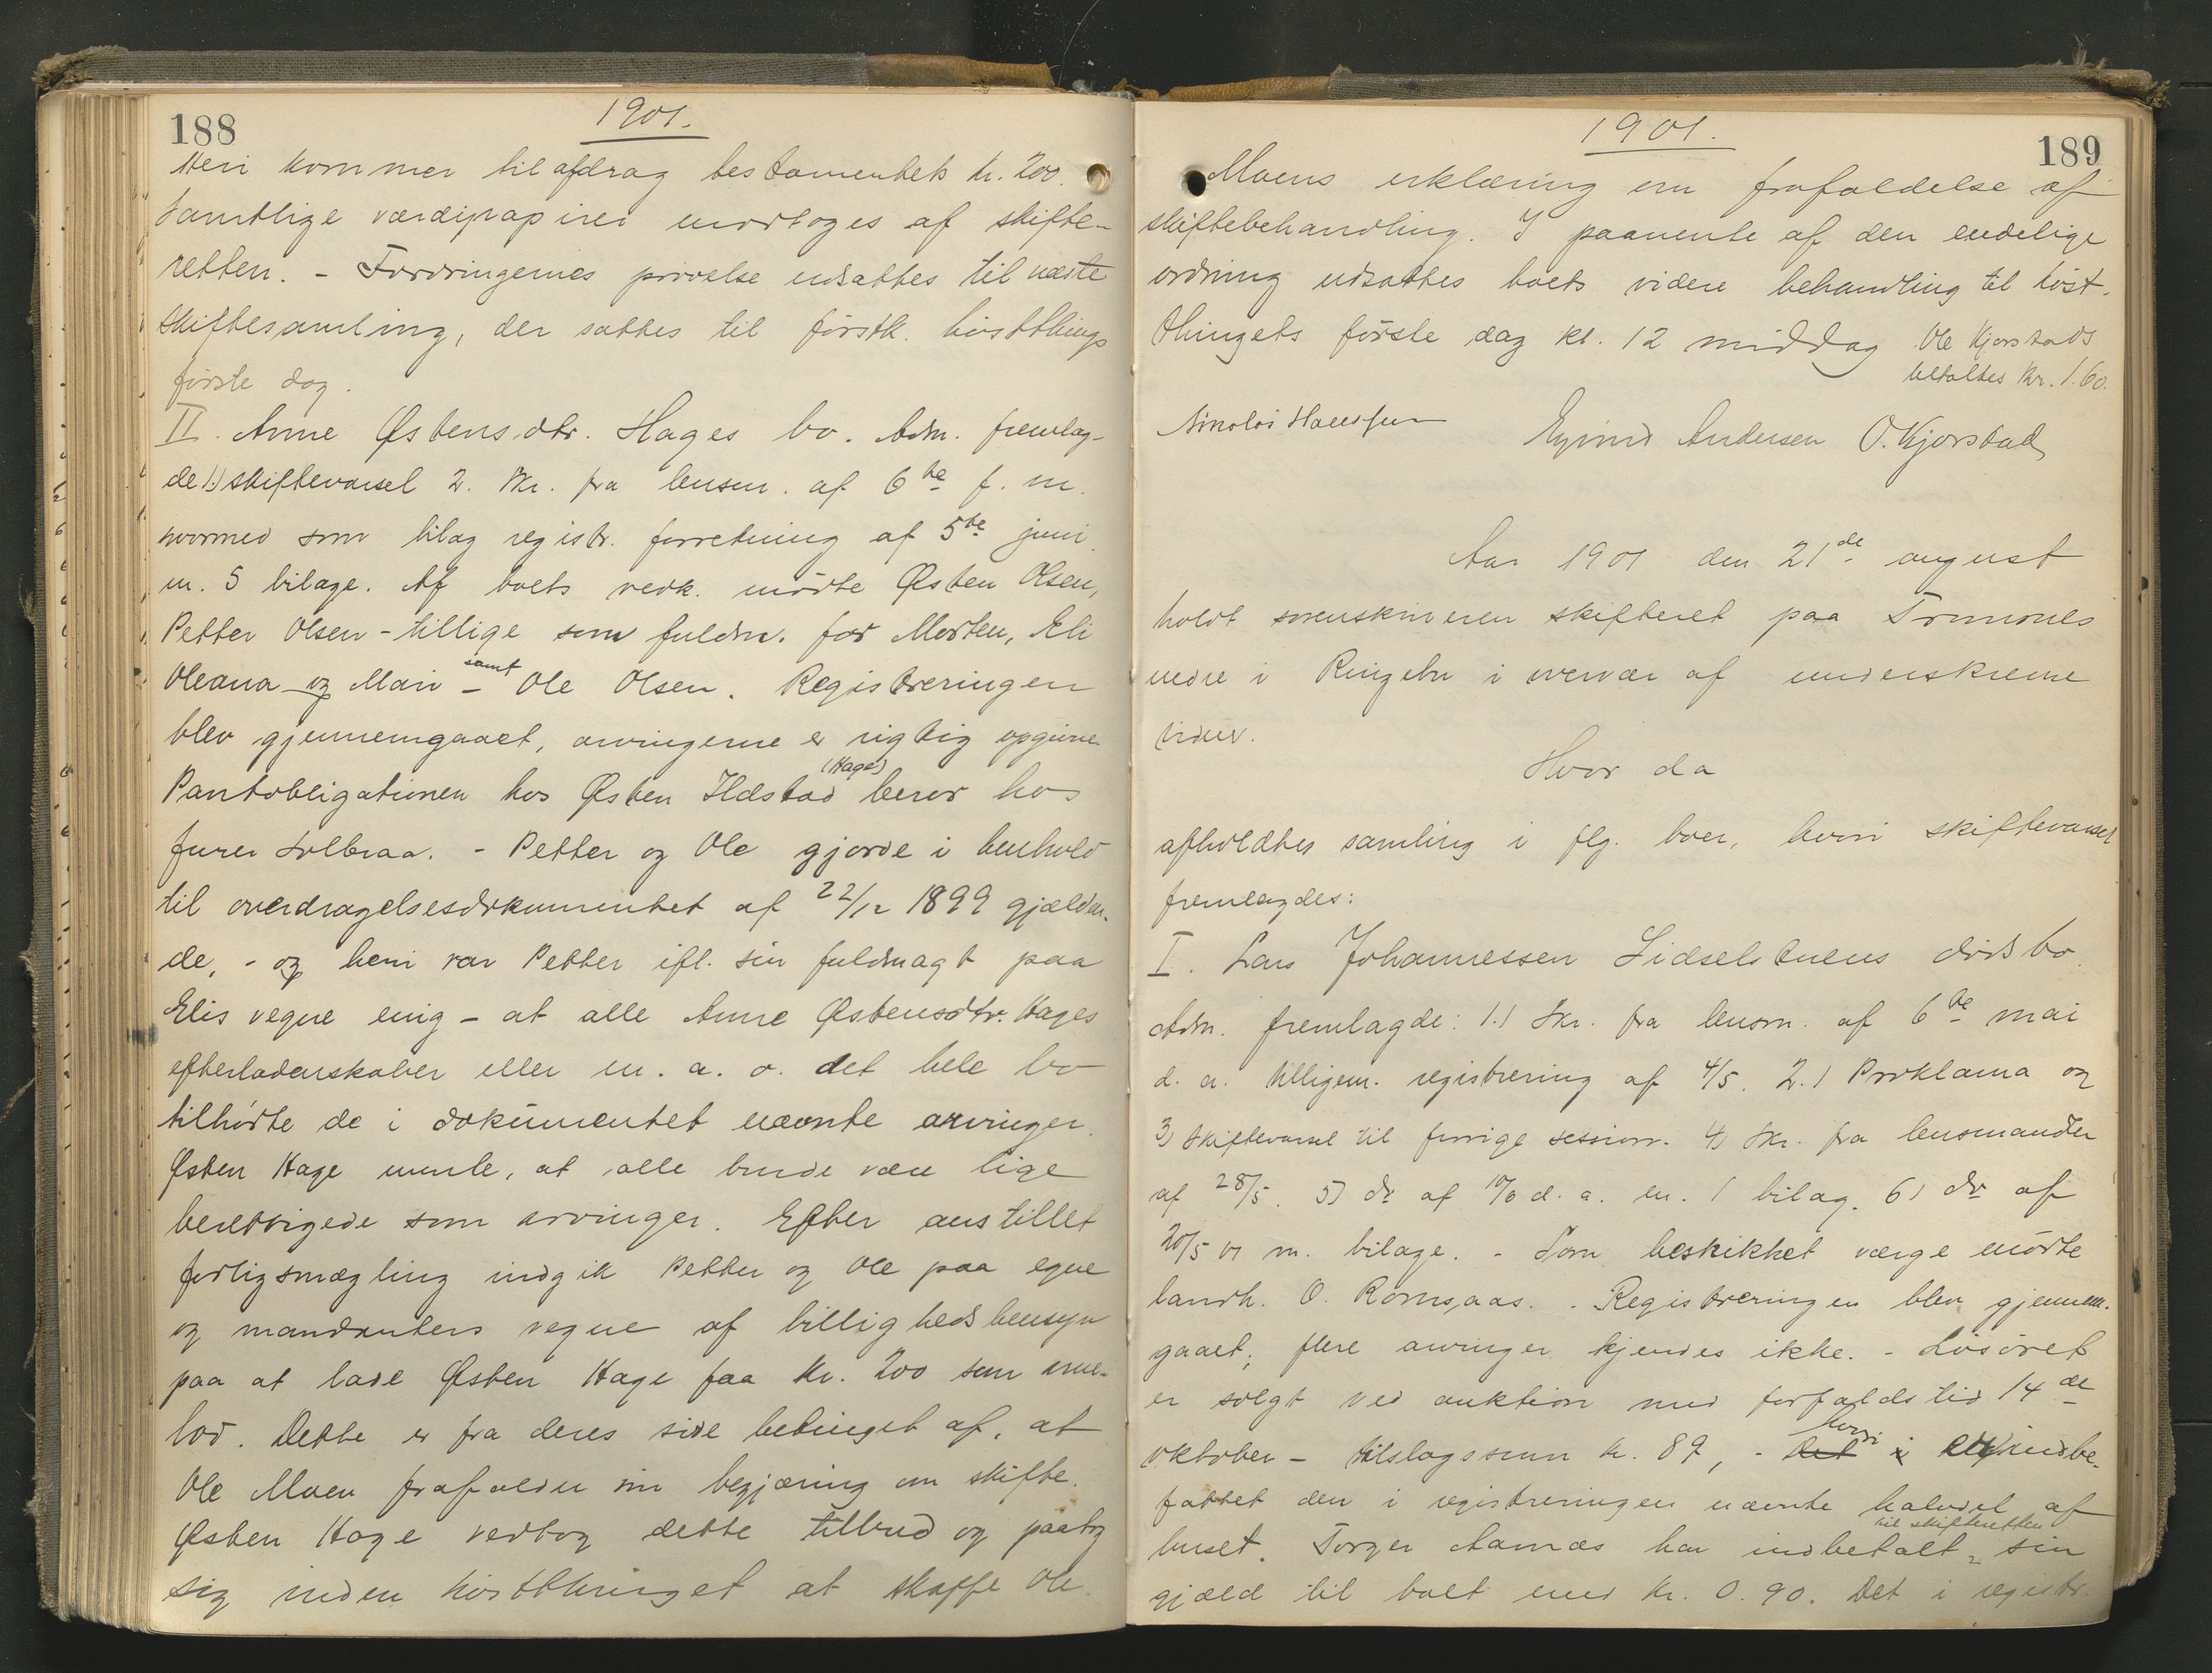 188
1901.
Heri kommer til afdrag testamentets kr. 200.
Samtlige værdipapirer modtoges af skifte-
retten. - Fordringernes prøvelse udsattes til næste
skiftesamling, der sattes til førstk. høstthings
første dag.
II. Anne Østensdtr. Hages bo. Adm. fremlag-
de 1) skiftevarsel 2. Skr. fra lensm. af 6te f. m.
hvormed som bilag registr. forretning af 5te juni
m. 5 bilage. Af boets vedk. mødte Østen Olsen,
Petter Olsen - tillige som fuldm. for Morten, Eli
Oleana og Mari - samt Ole Olsen. Registreringen
blev gjennemgaaet, arvingerne er rigtig opgivne
Pantobligationen hos Østen Ildstad (Hage) beror hos
furer Solbraa. - Petter og Ole gjorde i henhold
til overdragelsesdokumentet af 22/12 1899 gjælden-
de, - og heri var Petter ifl. sin fuldmagt paa
Elis vegne enig - at alle Anne Østensdtr. Hages
efterladenskaber eller m. a. o. det hele bo
tilhørte de i dokumentet nævnte arvinger.
Østen Hage mente, at alle burde være lige
berettigede som arvinger. Efter anstillet
forligsmægling indgik Petter og Ole paa egne
og mandanters vegne af billighedshensyn
paa at lade Østen Hage faa kr. 200 som arve-
lod. Dette er fra deres side betinget af, at
Ole Moen frafalder sin begjæring om skifte.
Østen Hage vedtog dette tilbud og paatog
sig inden høstthinget at skaffe Ole
189
1901.
Moens erklæring om frafaldelse af
skiftebehandling. I paavente af den endelige
ordning udsattes boets videre behandling til høst-
thingets første dag kl. 12 middag Ole Kjorstads
betaltes kr. 1.60.
Eyvind Andersen O. Kjorstad
Aar 1901 den 21de august
holdt sorenskriveren skifteret paa Tromsnes
nedre i Ringebu i overvær af underskrevne
vidner.
Hvor da
afholdtes samling i flg. boer, hvori skiftevarsel
fremlagdes:
I. Lars Johannessen Lidselstuens dødsbo.
Adm. fremlagde: 1.) Skr. fra lensm. af 6te mai
d. a. tilligem. registrering af 4/5. 2.) Proklama og
3) Skiftevarsel til forrige session. 4) Skr. fra lensmanden
af 28/5. 5) do af 10/6 d. a. m. 1 bilag. 6) do af
20/5 01 m. bilage. - Som beskikket værge mødte
landh. O. Romsaas. - Registreringen blev gjennem-
gaaet; flere arvinger kjendes ikke. - Løsøret
er solgt ved auktion med forfaldstid 14de
oktober - tilslagssum kr. 89, - Det hvori i indbe-
fattet den i registreringen nævnte halvdel af
huset. Torger Aamæs har indbetalt til skifteretten sin
gjæld til boet med kr. 0.90. Det i registr.